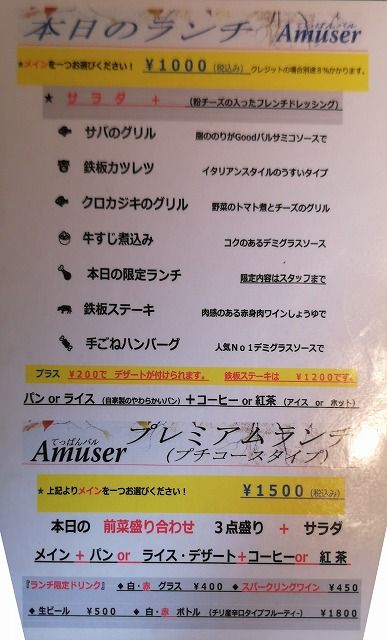 本日のランチ てっぱんバル Amuser
★メインを一つお選びください！ ￥1000（税込み） クレジットの場合別途8%かかります。
★ サラダ + （粉チーズの入ったフレンチドレッシング）
サバのグリル 脂ののりがGoodバルサミコソースで
鉄板カツレツ イタリアンスタイルのうすいタイプ
クロカジキのグリル 野菜のトマト煮とチーズのグリル
牛すじ煮込み コクのあるデミグラスソース
本日の限定ランチ 限定内容はスタッフまで
鉄板ステーキ 肉感のある赤身肉ワインしょうゆで
手ごねハンバーグ 人気No1デミグラスソースで
プラス ￥200で デザートが付けられます。 鉄板ステーキは ￥1200です。
パン or ライス （自家製のやわらかいパン） +コーヒー or 紅茶 （アイス or ホット）
てっぱんバル Amuser プレミアムランチ
（プチコースタイプ）
★ 上記よりメインを一つお選びください！ ￥1500（税込み）
本日の 前菜盛り合わせ 3点盛り + サラダ
メイン + パン or ライス・デザート+コーヒーor 紅茶
『ランチ限定ドリンク』 ◆ 白・赤 グラス ￥400 ◆ スパークリングワイン ￥450
◆ 生ビール ￥500 ◆ 白・赤 ボトル （チリ産辛口タイプフルーティ-） ￥1800